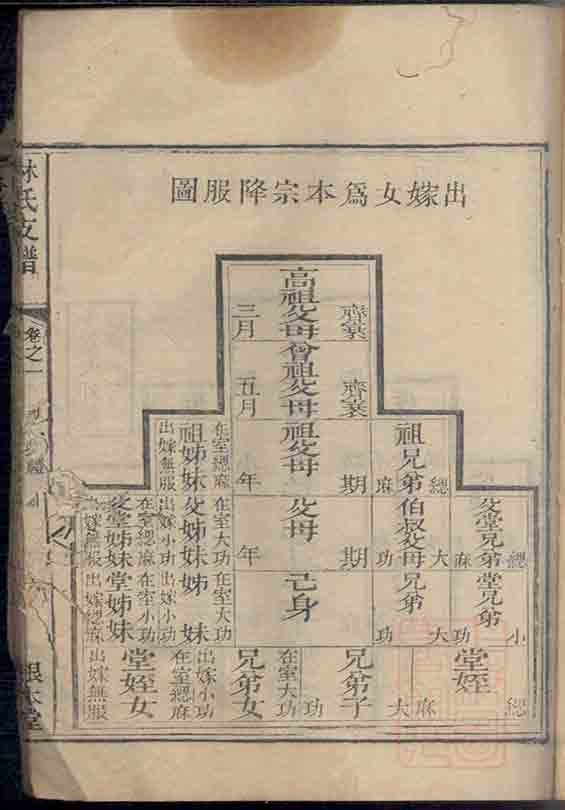 出嫁女爲本宗降服圖
林氏支譜
卷之一
高祖父母
齊衰
三月
曾祖父母
齊衰
五月
祖兄弟
緦麻
祖父母
期年
祖姊妹
在室緦麻
出嫁無服
父堂兄弟
緦麻
伯叔父母
大功
父母
期年
父姊妹
在室大功
出嫁小功
父堂姊妹
在室緦麻
出嫁無服
堂兄弟
小功
兄弟
大功
己身
姊妹
在室大功
出嫁小功
堂姊妹
在室小功
出嫁緦麻
堂姪
緦麻
兄弟子
大功
兄弟女
在室大功
出嫁小功
堂姪女
在室緦麻
出嫁無服